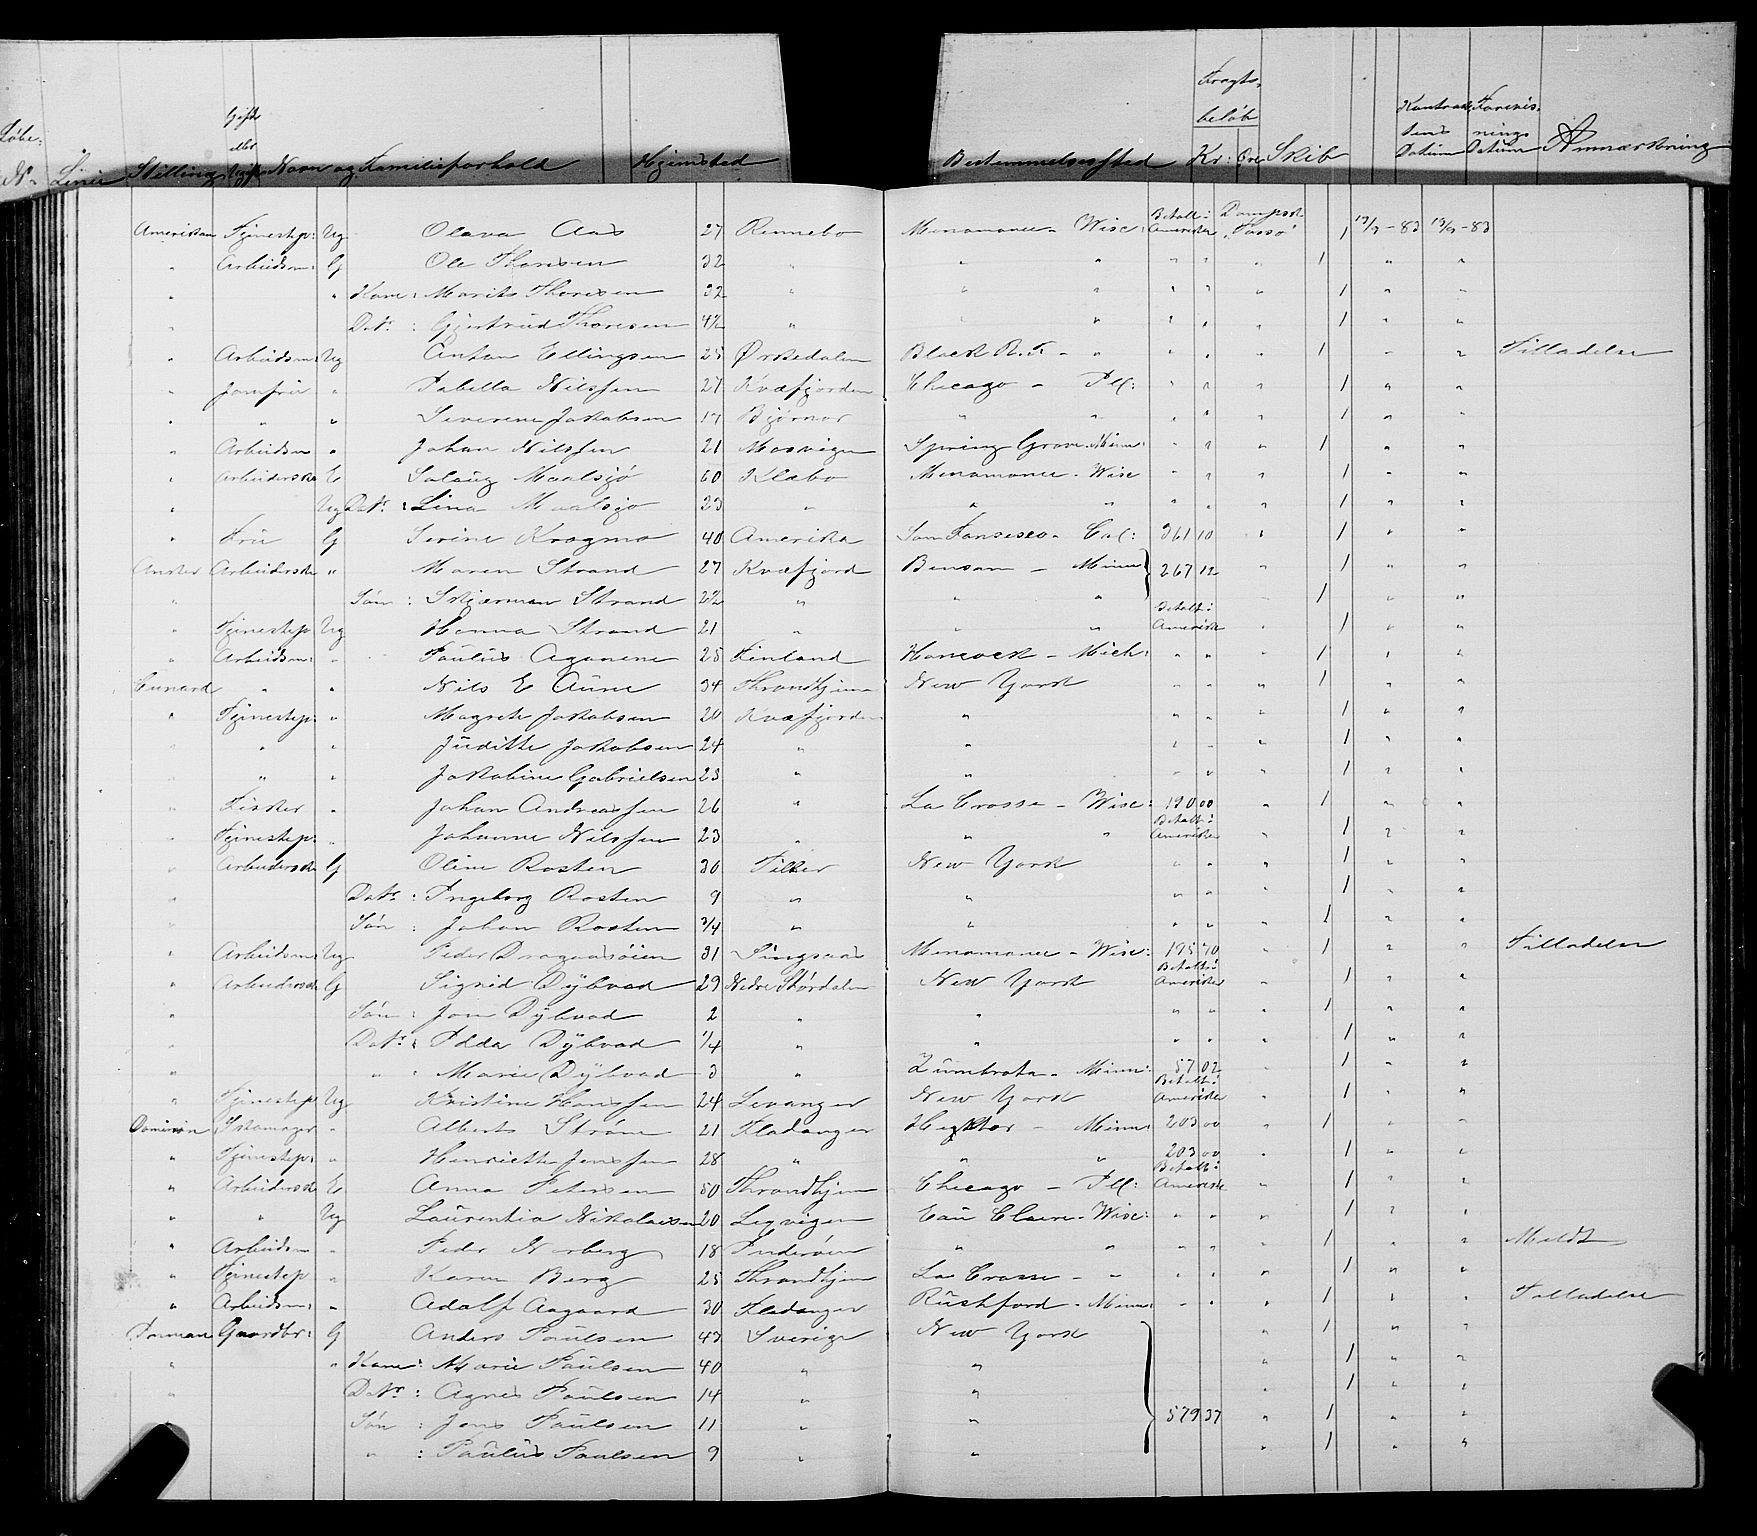 Løbe- Gift Fragts- Kontrak- Forevis-
eller beløb tens nings
No Linie Stilling Ugift Navn og Familieforhold Hjemsted Bestemmelsessted Kr: Øre Skib Datum Datum Anmærkning
Amerikan Tjenestep: Ug Olava Aas 27 Rennebo Menomonee - Wisc: Betalt i Amerika Dampsk. "Tasso" 1 19/9 - 83 19/9 - 83
" Arbeidsm: G Ole Thoresen 32 " " " " " " 1 " "
" " Kone: Marits Thoresen 32 " " " " " " 1 " "
" Datr: Gjertrud Thoresen 4½ " " " " " " 1 " "
" Arbeidsm: Ug Anton Ellingsen 25 Ørkedalen Black R. F. - " " " " 1 " " Tilladelse
" Jomfru " Isabella Nilssen 27 Kvæfjorden Chicago - Ill: " " " 1 " "
" " " Severene Jakobsen 17 Bjørnør " " " " " 1 " "
" Arbeidsm " Johan Nilssen 21 Mosvigen Spring Grove Minn: " " " 1 " "
" Arbeiderske E Solaug Maalsjø 60 Klæbo Menomonee - Wisc " " " 1 " "
" Ug Datr: Lina Maalsjø 23 " " " " " " 1 " "
" Frue G Serine Kragmo 40 Amerika San Fansisco - Cal: 361 10 " 1 " "
Anchor Arbeiderske " Maren Strand 27 Kvæfjord Benson - Minn 267 12 " 1 " "
" Søn: Skjerman Strand 2½ " " " " 1 " "
" Tjenestep Ug Hanna Strand 21 " " " Betalt i Amerika " 1 " "
" Arbeidsm: " Paulus Aganene 25 Finland Hancock - Mich: " " " 1 " "
Cunard " " Nils E Aune 34 Throndhjem New York " " " 1 " "
" Tjenestep: " Magrete Jakobsen 20 Kvæfjorden " " " " 1 " "
" " " Judithe Jakobsen 24 " " " " " 1 " "
" " " Jakobine Gabrielsen 23 " " " " " 1 " "
" Fisker " Johan Andreassen 26 " La Crosse - Wisc: 190 00 " 1 " "
" Tjenestep: " Johanne Nilssen 23 " " " Betalt i Amerika " 1 " "
" Arbeiderske G Oline Rosten 30 Tiller New York " " " 1 " "
" Datr: Ingeborg Rosten 9 " " " " " 1 " "
" Søn: Johan Rosten 3/4 " " " " " 1 " "
" Arbeidsm: Ug Peder Dragaasøien 31 Singsaas Menomonee - Wisc: 195 70 " 1 " " Tilladelse
" Arbeiderske G Sigrid Dÿbvad 29 Nedre Størdalen New York Betalt i Amerika " 1 " "
" Søn: Jon Dÿbvad 2 " " " " " 1 " "
" Datr: Idda Dÿbvad 1/4 " " " " " 1 " "
" " : Marie Dÿbvad 3 " Zumbrota - Minn: 57 02 " 1 " "
" Tjenestep Ug Kristine Hanssen 24 Levanger New York Betalt i Amerika " 1 " "
Dominion Skomager " Alberts Strøm 21 Fladanger Hecktor - Minn: 203 00 " 1 " "
" Tjenestep: " Henriette Jenssen 28 " " " 203 00 " 1 " "
" Arbeiderske E Anna Petersen 50 Throndhjem Chicago - Ill: Betalt i Amerika " 1 " "
" " Ug Laurentia Nikolaisen 20 Lexvigen Eau Claire - Wisc: " " " 1 " "
" Arbeidsm " Peder Norberg 18 Inderøen " " " " " 1 " " Meldt
" Tjenestep " Karen Berg 25 Throndhjem La Crosse - " " " " 1 " "
" Arbeidsm: " Adolf Aagaard 30 Fladanger Rushford - Minn: " " " 1 " " Tilladelse
Inman Gaardbr: G Anders Paulsen 43 Sverige New York " 1 " "
" " Kone: Marie Paulsen 40 " " " 1 " "
" Datr: Agnes Paulsen 14 " " " 1 " "
Søn: Jens Paulsen 11 " " 579 37 " 1 " "
" : Paulus Paulsen 9 " " " 1 " "